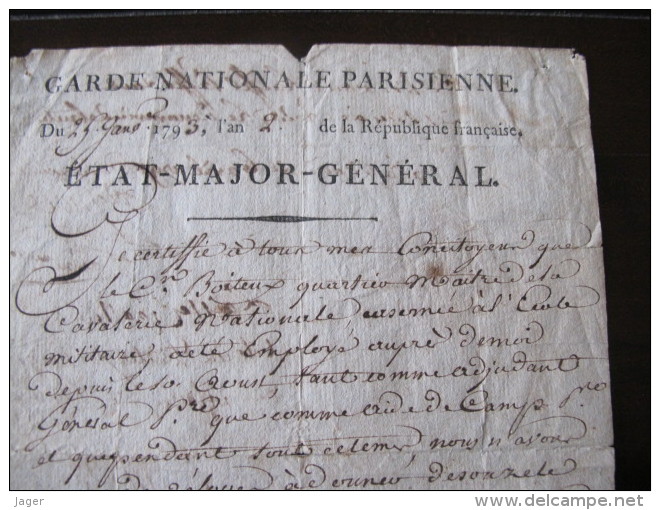 GARDE-NATIONALE PARISIENNE.
Du 25 Janv.er 1793, l'an 2. de la République française.
ÉTAT-MAJOR-GÉNÉRAL.
Je certiffie à tous mes Concitoyens que
le C.n Boiteux quartier Maitre de la
Cavalerie Nationale, casernée à l'Ecole
militaire, a été Employé auprè de moi
depuis le 10 Aoust, tant comme adjudant
Général P.re que comme aide de Camp P.re
et que pendant tout ce tems, nous n'avons
à donner des
jager
www.delcampe.net